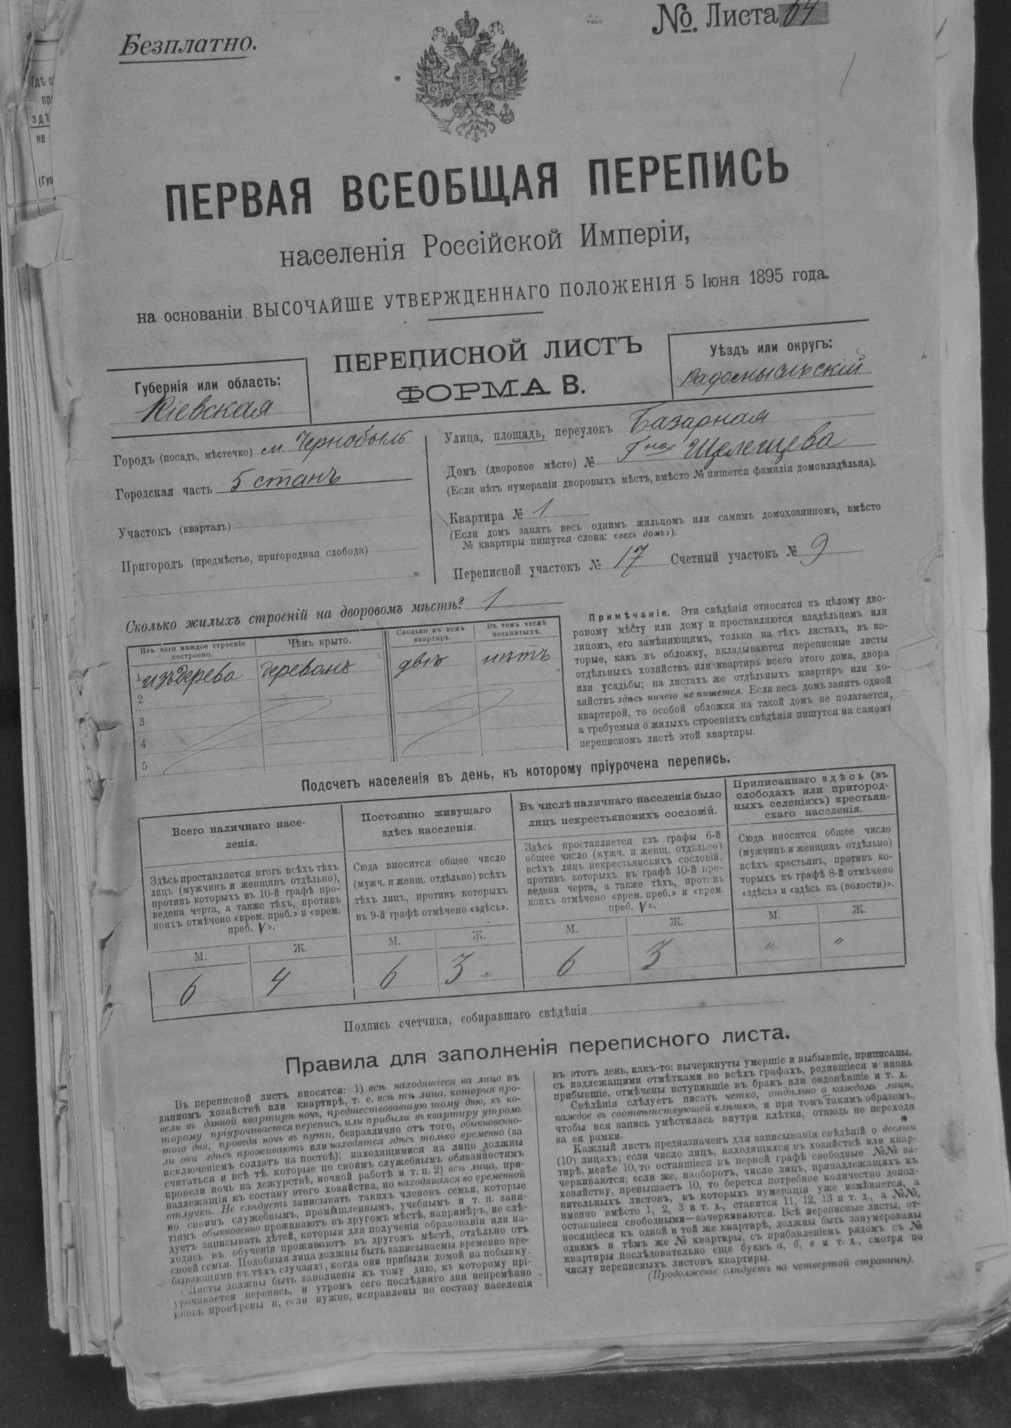 Безплатно.
№ Листа 64
ПЕРВАЯ ВСЕОБЩАЯ ПЕРЕПИСЬ
населенія Россійской Имперіи,
на основаніи ВЫСОЧАЙШЕ УТВЕРЖДЕННАГО ПОЛОЖЕНІЯ 5 Іюня 1895 года.
ПЕРЕПИСНОЙ ЛИСТЪ
ФОРМА В.
Губернія или область:
Кіевская
Уѣздъ или округъ:
Радомысльскій
Городъ (посадъ, мѣстечко) м. Чернобыль
Городская часть 5 станъ
Участок (кварталъ)
Пригородъ (предмѣстье, пригородная слобода)
Улица, площадь, переулокъ Базарная
Домъ (дворовое мѣсто) № Гна Щелещева
(Если нѣтъ нумераціи дворовыхъ мѣстъ, вмѣсто № пишется фамилія домовладѣльца).
Квартира № 1
(Если домъ занятъ весь однимъ жильцомъ или самимъ домохозяиномъ, вмѣсто
№ квартиры пишутся слова: «весь домъ»).
Переписной участокъ № 17 Счетный участокъ № 9
Сколько жилыхъ строеній на дворовомъ мѣстѣ? 1
Изъ чего каждое строеніе
построено.
Чѣмъ крыто.
Сколько въ немъ
квартиръ.
Въ томъ числѣ
незанятыхъ.
1 изъ дерева деревомъ двѣ нѣтъ
2
3
4
5
Примѣчаніе. Эти свѣдѣнія относятся къ цѣлому дво-
ровому мѣсту или дому и проставляются владѣльцемъ или
лицомъ, его замѣняющимъ, только на тѣхъ листахъ, въ ко-
торые, какъ въ обложку, вкладываются переписные листы
отдѣльныхъ хозяйствъ или квартиръ всего этого дома, двора
или усадьбы; на листахъ же отдѣльныхъ квартиръ или хо-
зяйствъ здѣсь ничего не пишется. Если весь домъ занятъ одной
квартирой, то особой обложки на такой домъ не полагается,
а требуемыя о жилыхъ строеніяхъ свѣдѣнія пишутся на самомъ
переписномъ листѣ этой квартиры.
Подсчетъ населенія въ день, къ которому пріурочена перепись.
Всего наличнаго насе-
ленія.
Здѣсь проставляется итогъ всѣхъ тѣхъ
лицъ (мужчинъ и женщинъ отдѣльно),
противъ которыхъ въ 10-й графѣ про-
ведена черта, а также тѣхъ, противъ
коихъ отмѣчено «врем. преб.» и «врем.
преб. V».
Постоянно живущаго
здѣсь населенія.
Сюда вносится общее число
(мужч. и женщ. отдѣльно) всѣхъ
тѣхъ лицъ, противъ которыхъ
въ 9-й графѣ отмѣчено «здѣсь».
Въ числѣ наличнаго населенія было
лицъ некрестьянскихъ сословій.
Здѣсь проставляется изъ графы 6-й
общее число (мужч. и женщ. отдѣльно)
всѣхъ лицъ некрестьянскихъ сословій,
противъ которыхъ въ графѣ 10-й про-
ведена черта, а также тѣхъ, противъ
коихъ отмѣчено «врем. преб.» и «врем.
преб. V».
Приписаннаго здѣсь (въ
слободахъ или пригород-
ныхъ селеніяхъ) крестьян-
скаго населенія.
Сюда вносится общее число
(мужчинъ и женщинъ отдѣльно)
всѣхъ крестьянъ, противъ ко-
торыхъ въ графѣ 8-й отмѣчено
«здѣсь» и «здѣсь къ (волости)».
М. Ж. М. Ж. М. Ж. М. Ж.
6 4 6 3 6 3 " "
Подпись счетчика, собиравшаго свѣдѣнія
Правила для заполненія переписного листа.
Въ переписной листъ вносятся: 1) всѣ находящіеся на лицо въ
данномъ хозяйствѣ или квартирѣ, т. е. всѣ тѣ лица, которыя про-
вели въ данной квартирѣ ночь, предшествовавшую тому дню, къ ко-
торому пріурочивается перепись, или прибыли въ квартиру утромъ
того дня, проведя ночь въ пути, безразлично отъ того, обыкновенно-
ли они здѣсь проживаютъ или находятся здѣсь только временно (за
исключеніемъ солдатъ на постоѣ); находящимися на лицо должны
считаться и всѣ тѣ, которые по своимъ служебнымъ обязанностямъ
провели ночь на дежурствѣ, ночной работѣ и т. п. 2) всѣ лица, при-
надлежащія къ составу этого хозяйства, но находящіяся во временной
отлучкѣ. Не слѣдуетъ записывать такихъ членовъ семьи, которые
по своимъ служебнымъ, промышленнымъ, учебнымъ и т. п. заня-
тіямъ обыкновенно проживаютъ въ другомъ мѣстѣ, напримѣръ, не слѣ-
дуетъ записывать дѣтей, которыя для полученія образованія или на-
ходясь въ обученіи проживаютъ въ другомъ мѣстѣ, отдѣльно отъ
своей семьи. Подобныя лица должны быть записываемы временно пре-
бывающими въ тѣхъ случаяхъ, когда они прибыли домой на побывку.
Листы должны быть заполнены къ тому дню, къ которому прі-
урочивается перепись, и утромъ сего послѣдняго дня непремѣнно
вновь провѣрены и, если нужно, исправлены по составу населенія
въ этотъ день, какъ-то: вычеркнуты умершіе и выбывшіе, приписаны,
съ надлежащими отмѣтками во всѣхъ графахъ, родившіеся и вновь
прибывшіе, отмѣчены вступившіе въ бракъ или овдовѣвшіе и т. д.
Свѣдѣнія слѣдуетъ писать четко, отдѣльно о каждомъ лицѣ,
каждое въ соотвѣтствующей клѣткѣ, и при томъ такимъ образомъ,
чтобы вся запись умѣстилась внутри клѣтки, отнюдь не переходя
за ея рамки.
Каждый листъ предназначенъ для записыванія свѣдѣній о десяти
(10) лицахъ; если число лицъ, находящихся въ хозяйствѣ или квар-
тирѣ, менѣе 10, то оставшіеся въ первой графѣ свободные №№ за-
черкиваются; если же, наоборотъ, число лицъ, принадлежащихъ къ
хозяйству, превышаетъ 10, то берется потребное количество допол-
нительныхъ листовъ, въ которыхъ нумерація уже измѣняется, а
именно вмѣсто 1, 2, 3 и т. д., ставится 11, 12, 13 и т. д., а №№,
оставшіеся свободными—зачеркиваются. Всѣ переписные листы, от-
носящіеся къ одной и той же квартирѣ, должны быть занумерованы
однимъ и тѣмъ же № квартиры, съ прибавленіемъ рядомъ съ №
квартиры послѣдовательно еще буквъ а, б, в и т. д., смотря по
числу переписныхъ листовъ квартиры.
(Продолженіе слѣдуетъ на четвертой страницѣ).